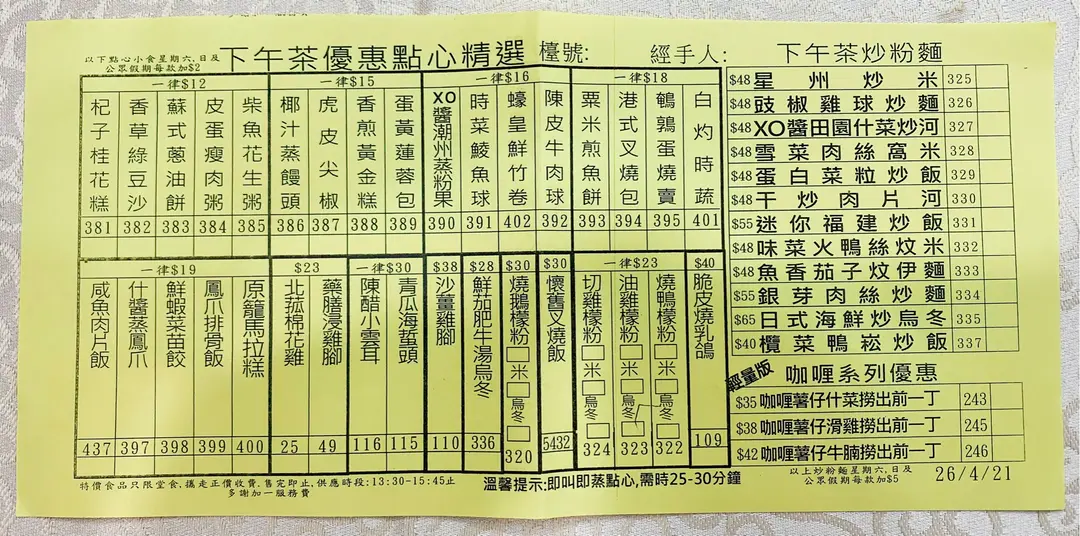 以下點心小食星期六,日及
公眾假期每款加$2
下午茶優惠點心精選
檯號:
經手人:
一律$12
杞子桂花糕
381
香草綠豆沙
382
蘇式蔥油餅
383
皮蛋瘦肉粥
384
柴魚花生粥
385
一律$15
椰汁蒸饅頭
386
虎皮尖椒
387
香煎黃金糕
388
蛋黃蓮蓉包
389
一律$16
XO醬潮州蒸粉果
390
時菜鯪魚球
391
蠔皇鮮竹卷
402
陳皮牛肉球
392
一律$18
粟米煎魚餅
393
港式叉燒包
394
鵪鶉蛋燒賣
395
白灼時蔬
401
一律$19
咸魚肉片飯
437
什醬蒸鳳爪
397
鮮蝦菜苗餃
398
鳳爪排骨飯
399
原籠馬拉糕
400
$23
北菰棉花雞
25
藥膳浸雞腳
49
一律$30
陳醋小雲耳
116
青瓜海蜇頭
115
$38
沙薑雞腳
110
$28
鮮茄肥牛湯烏冬
336
$30
燒鵝檬粉□米□烏冬□
320
$30
懷舊叉燒飯
5432
一律$23
切雞檬粉□米□烏冬□
324
油雞檬粉□米□烏冬□
323
燒鴨檬粉□米□烏冬□
322
$40
脆皮燒乳鴿
109
特價食品只限堂食,攜走正價收費,售完即止,供應時段:13:30-15:45止
多謝加一服務費
溫馨提示:即叫即蒸點心,需時25-30分鐘
下午茶炒粉麵
$48 星州炒米 325
$48 豉椒雞球炒麵 326
$48 XO醬田園什菜炒河 327
$48 雪菜肉絲窩米 328
$48 蛋白菜粒炒飯 329
$48 干炒肉片河 330
$55 迷你福建炒飯 331
$48 味菜火鴨絲炆米 332
$48 魚香茄子炆伊麵 333
$55 銀芽肉絲炒麵 334
$65 日式海鮮炒烏冬 335
$40 欖菜鴨崧炒飯 337
輕量版
咖喱系列優惠
$35 咖喱薯仔什菜撈出前一丁 243
$38 咖喱薯仔滑雞撈出前一丁 245
$42 咖喱薯仔牛腩撈出前一丁 246
以上炒粉麵星期六,日及
公眾假期每款加$5
26/4/21